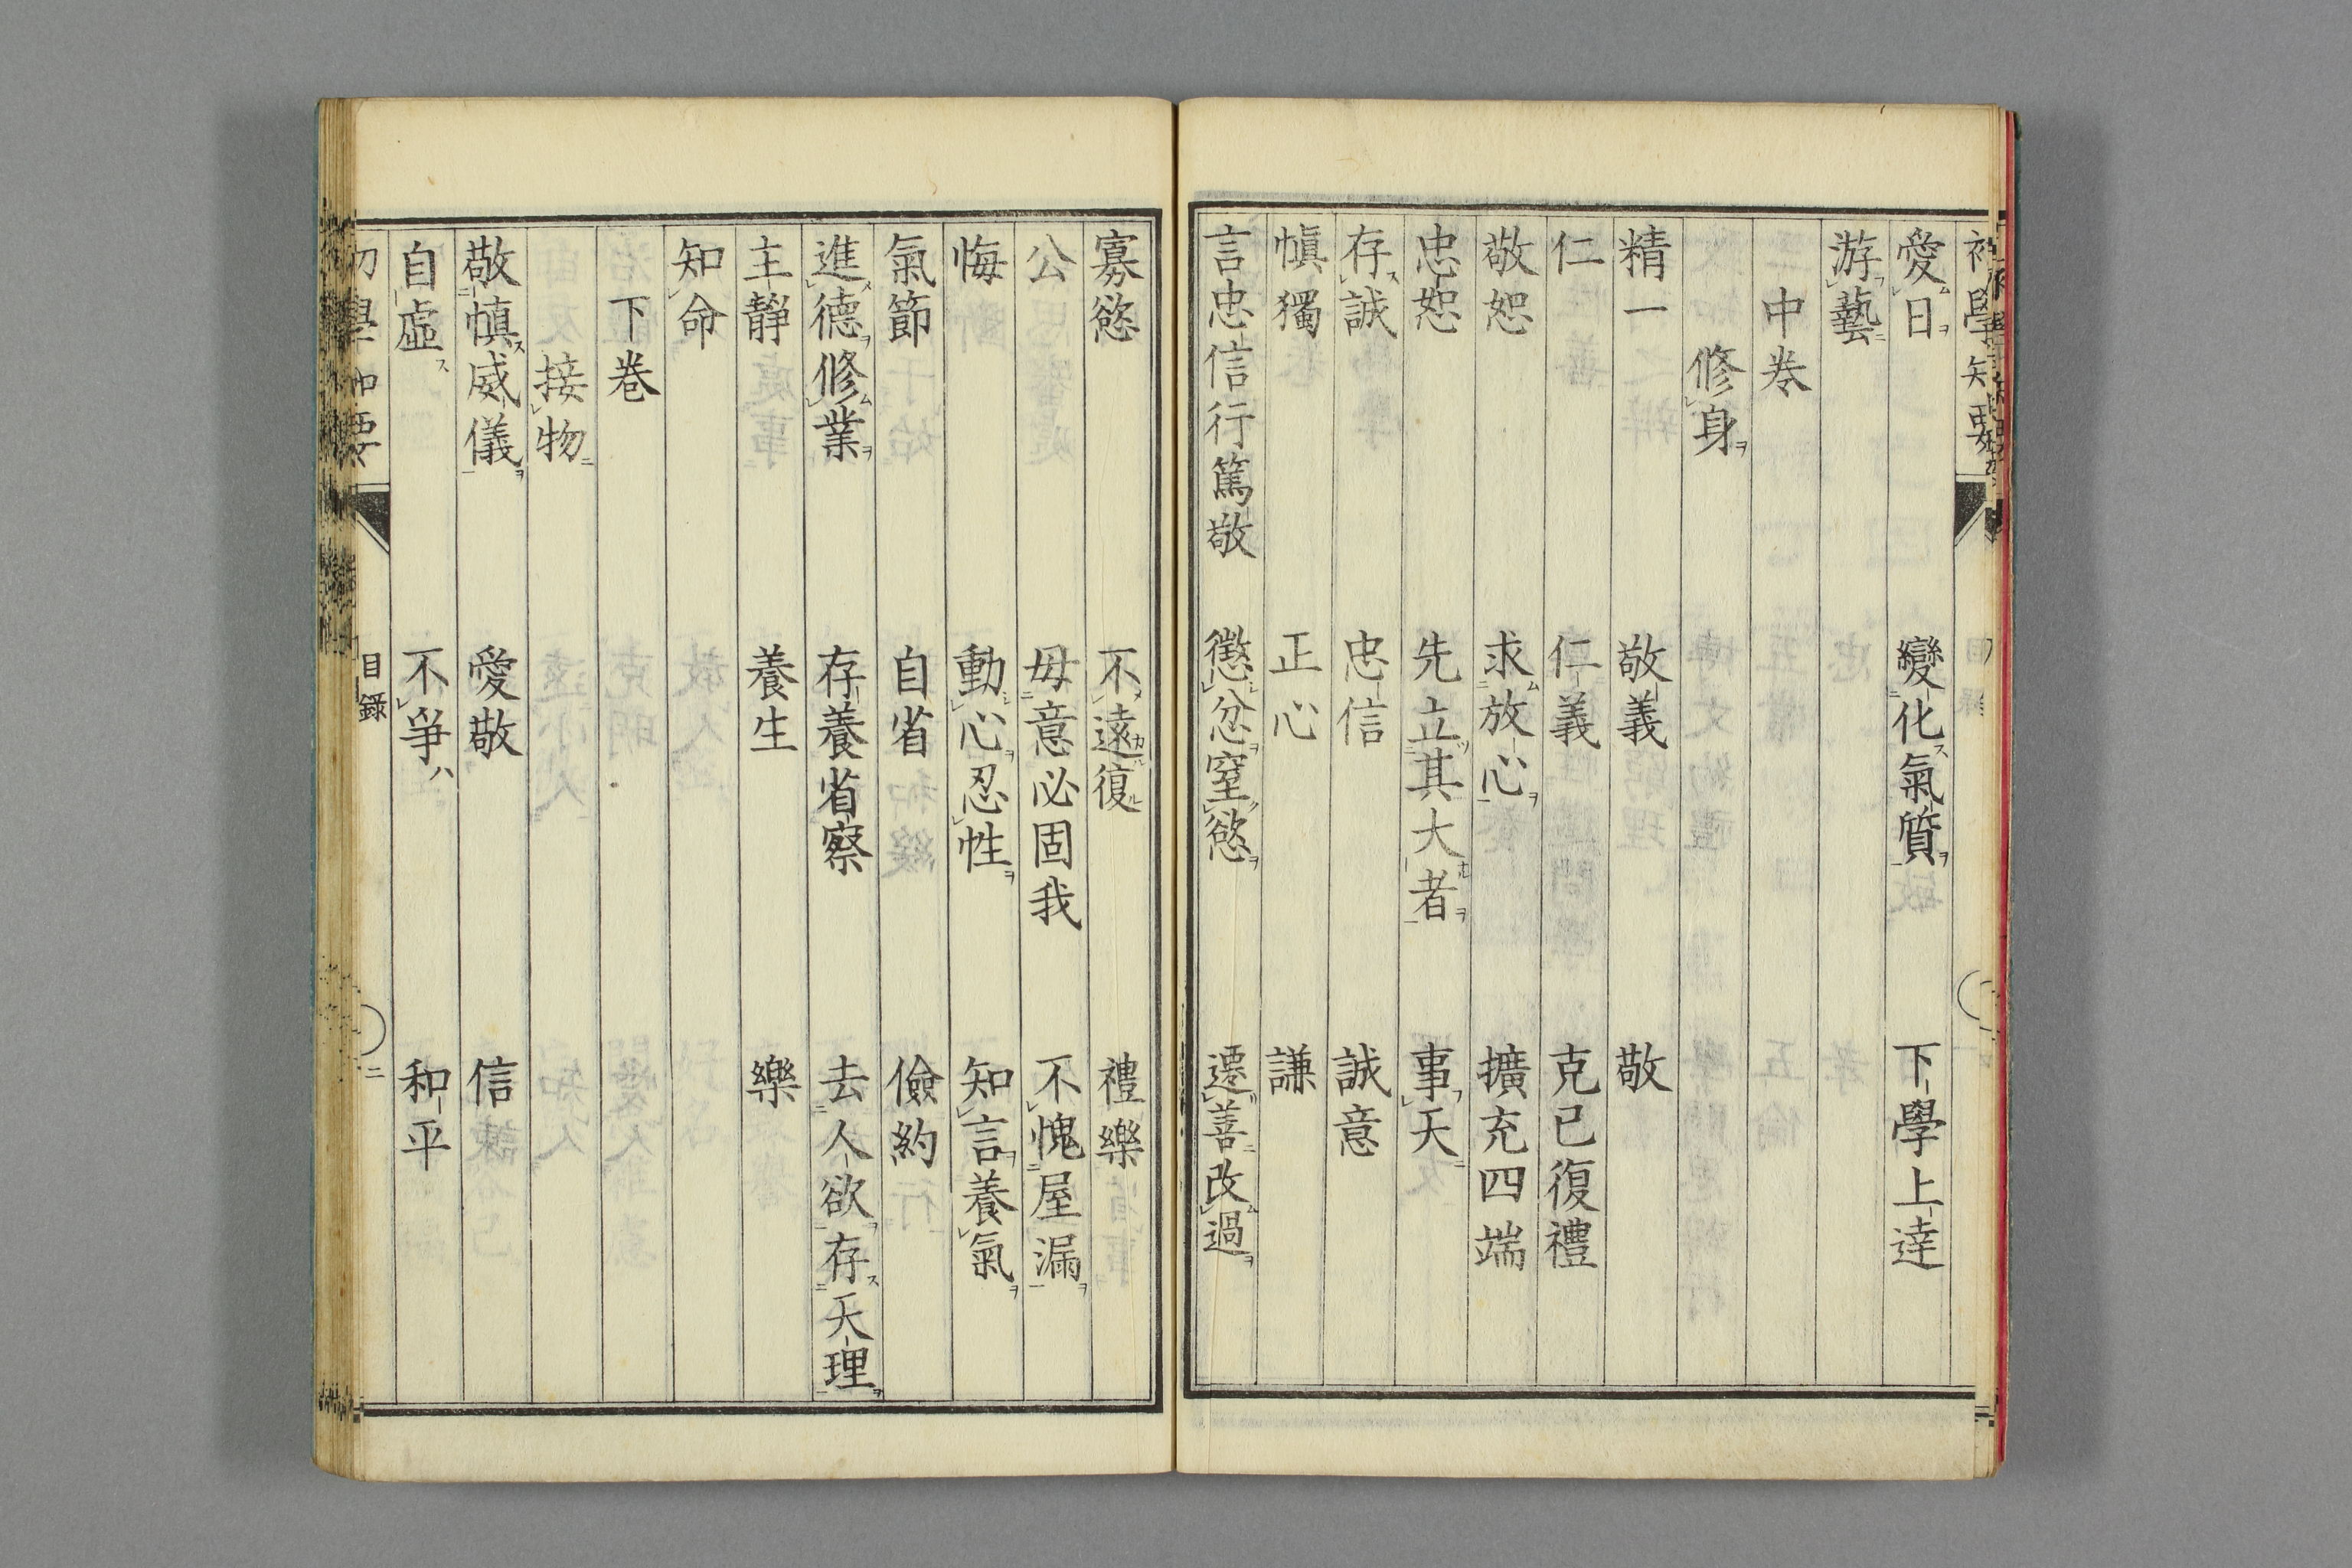 愛日 變化氣質 下學上達
游藝
中巻
修身
精一 敬義 敬
仁 仁義 克已復禮
敬恕 求放心 擴充四端
忠恕 先立其大者 事天
存誠 忠信 誠意
愼獨 正心 謙
言忠信行篤敬 懲忿窒慾 遷善改過
寡慾 不遠復 禮樂
公 毋意必固我 不愧屋漏
悔 動心忍性 知言養氣
氣節 自省 儉約
進德修業 存養省察 去人欲存天理
主靜 養生 樂
知命
下巻
接物
敬愼威儀 愛敬 信
自虛 不爭 和平
初學知要 目錄 二